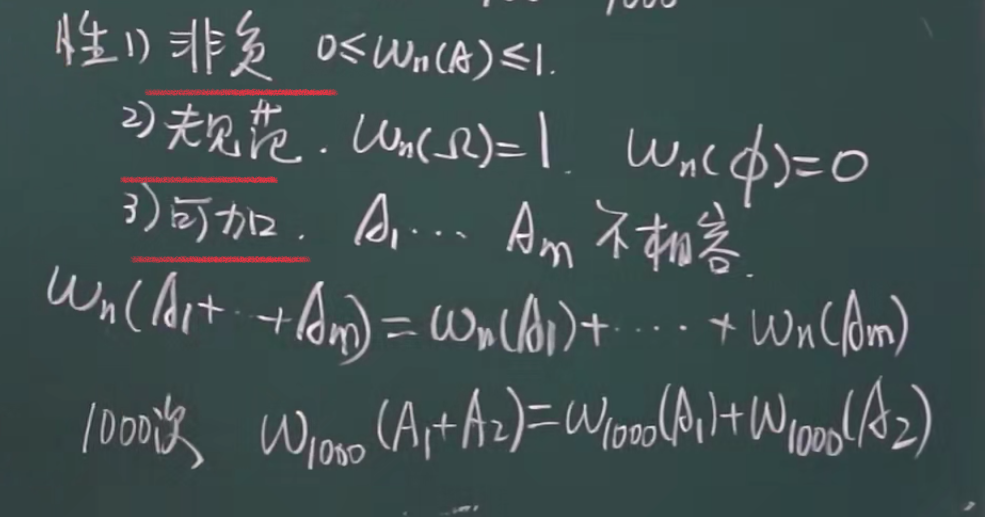 性1) 非负 0≤Wn(A)≤1.
2) 规范. Wn(Ω)=1. Wn(ϕ)=0
3) 可加. A₁⋯ Aₘ 不相容.
Wn(A₁+⋯+Aₘ)=Wn(A₁)+⋯⋯+Wn(Aₘ)
1000次 W₁₀₀₀(A₁+A₂)=W₁₀₀₀(A₁)+W₁₀₀₀(A₂)